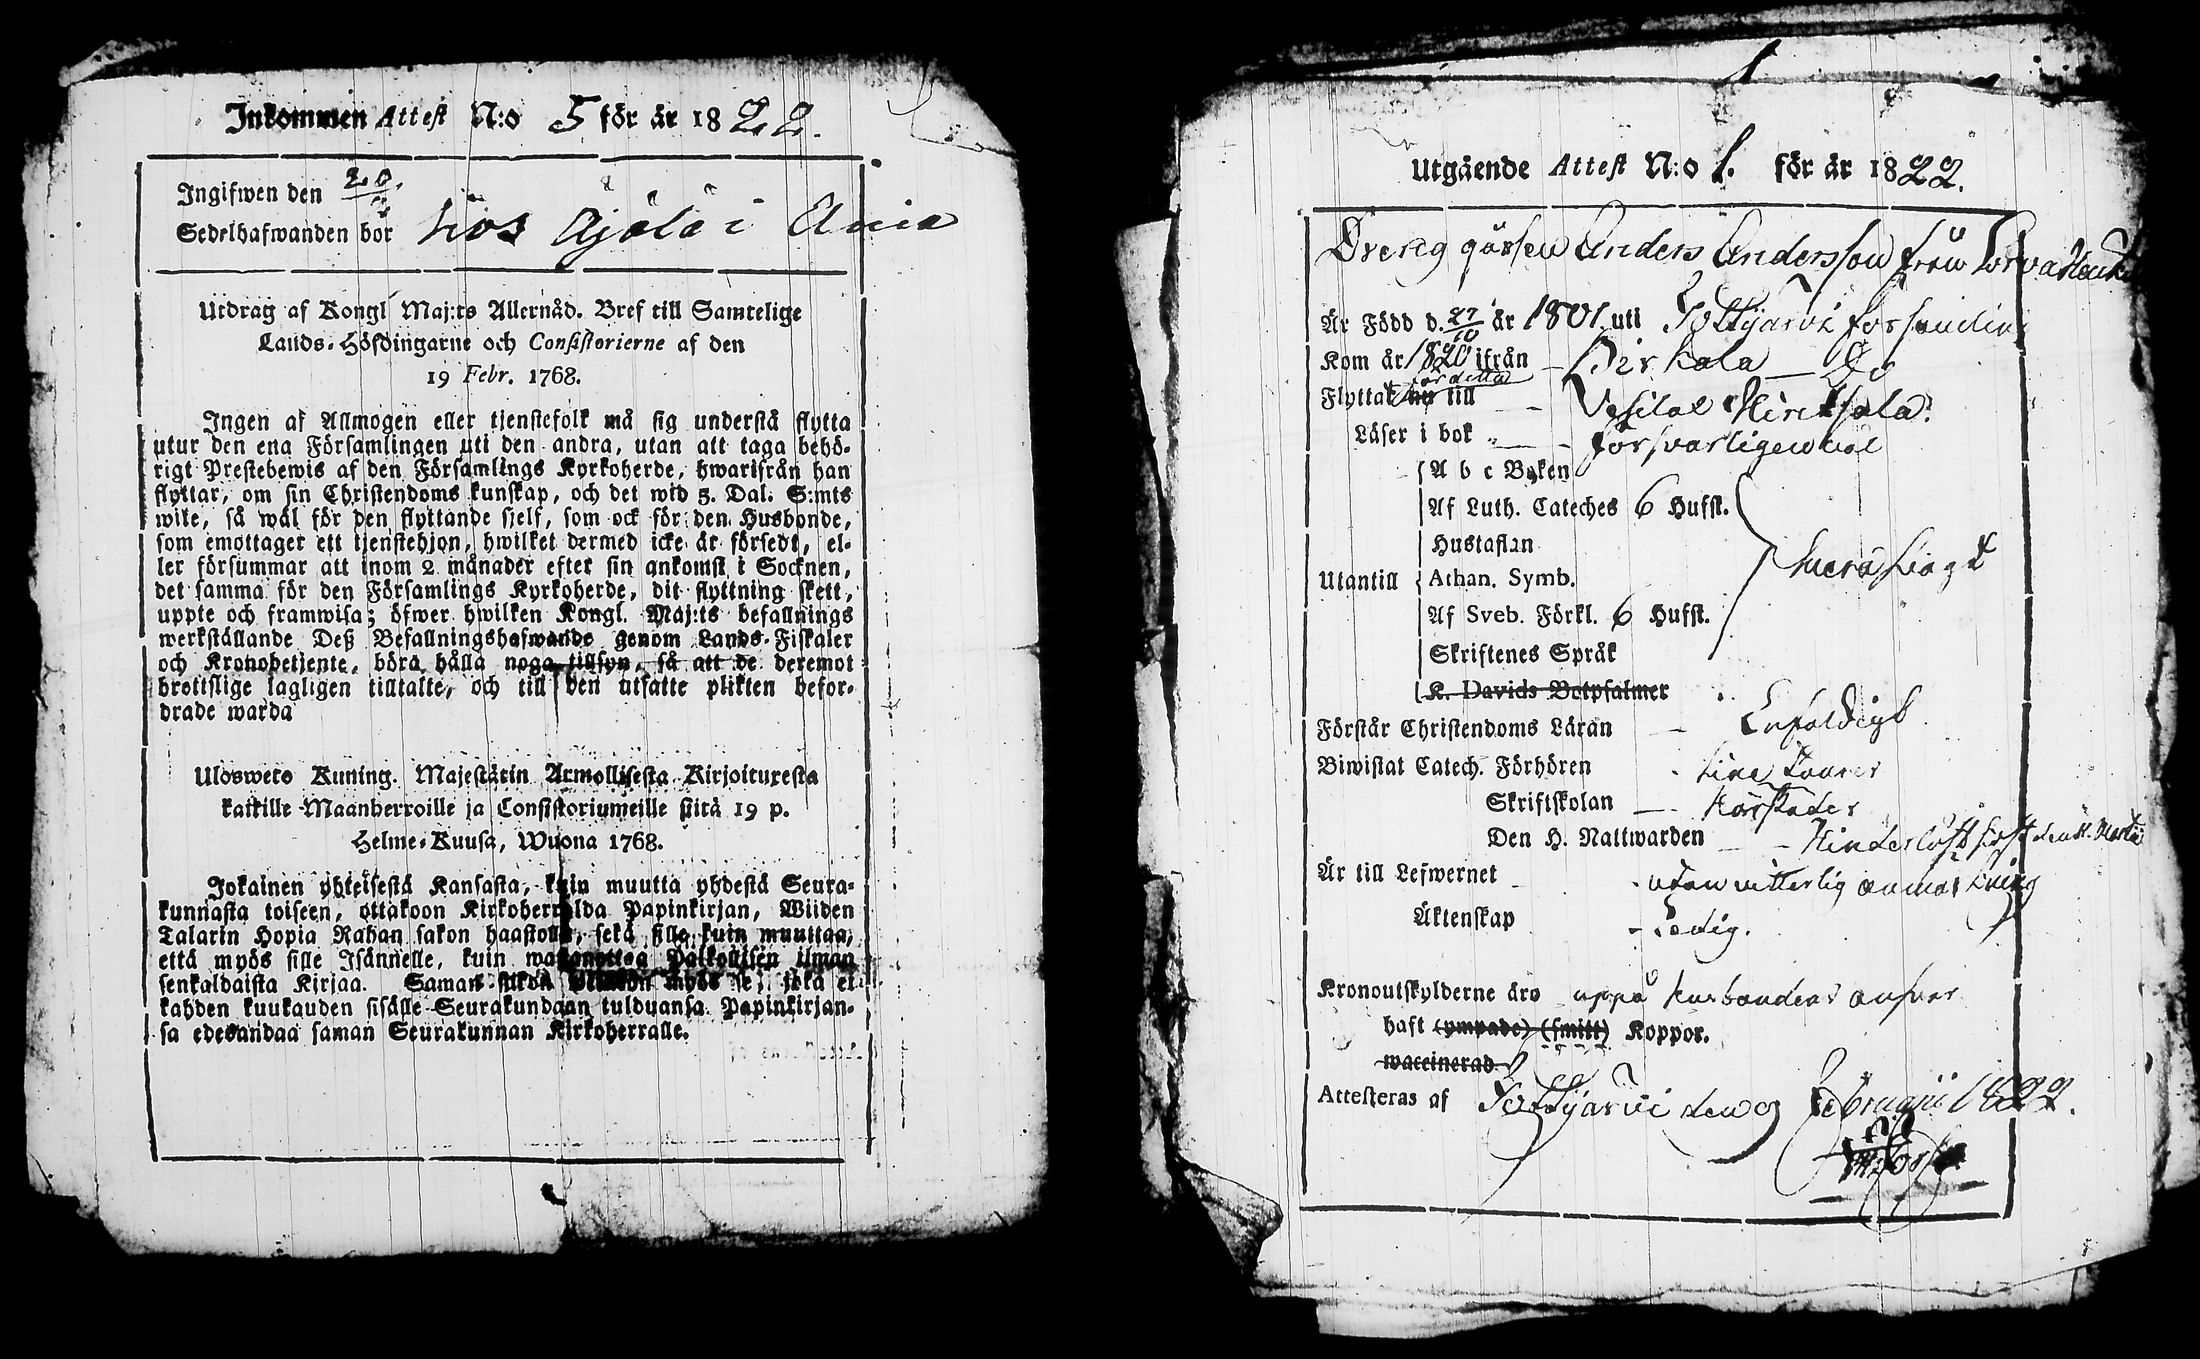 Inkommen Attest N:o 5 för år 1822.
Ingifwen den 20/2
Sedelhafwanden bor hos Ajola i Ania
Utdrag af Kongl Maj:ts Allernåd. Bref till Samtelige
Lands-Höfdingarne och Consistorierne af den
19 Febr. 1768.
Ingen af Allmogen eller tjenstefolk må sig understå flytta
utur den ena Församlingen uti den andra, utan att taga behö-
rigt Prestebewis af den Församlings Kyrkoherde, hwarifrån han
flyttar, om sin Christendoms kunskap, och det wid 5. Dal. S:mts
wite, så wäl för den flyttande sjelf, som ock för den Husbonde,
som emottager ett tjenstehjon, hwilket dermed icke är försedt, el-
ler försummar att inom 2 månader efter sin ankomst i Socknen,
det samma för den Församlings Kyrkoherde, dit flyttning skett,
uppte och framwisa; öfwer hwilken Kongl. Maj:ts befallnings
werkställande Deß Befallningshafwande genom Lands-Fiskaler
och Kronobetjente, böra hålla noga tillsyn, så att de deremot
brottslige lagligen tilltalte, och till den utsatte plikten befor-
drade warda
Ulosweto Kuning. Majestätin Armollisesta Kirjoituxesta
kaikille Maanherroille ja Consistoriumeille siitä 19 p.
Helme-Kuusa, Wuona 1768.
Jokainen yhteisestä Kansasta, kuin muutta yhdestä Seura-
kunnasta toiseen, ottakoon Kirkoherralda Papinkirjan, Wiiden
Talarin Hopia Rahan sakon haastolla, sekä sille kuin muuttaa,
että myös sille Isännelle, kuin wastanottaa Palkollisen ilman
senkaldaista Kirjaa. Saman sakon myös se, joka ei
kahden kuukauden sisälle Seurakundaan tulduansa Papinkirjan-
sa edesandaa saman Seurakunnan Kirkoherralle.
1
Utgående Attest N:o 1. för år 1822.
Anders Andersson från
Är Född d. 27/10 år 1801 uti Tottijärvi församling
Kom år 1820 ifrån - Birkala - Do
för detta
Flyttat nu till - Vesilax Hinsala.
Läser i bok - försvarligen väl
A b c Boken
Af Luth. Cateches 6 Hufst.
Hustaflan
Utantill Athan. Symb.
Af Sveb. Förkl. 6 Hufst.
Skriftenes Språk
K. Davids Botpsalmer
Förstår Christendoms Läran - Enfaldigt
Biwistat Catech. Förhören - sine
Skriftskolan -
Den H. Nattwarden - - sist den
Är till Lefwernet - utan witterlig anmärkning
Äktenskap - Ledig.
Kronoutskylderne äro uppå husbondens answar
haft (ympade) (smitt) Koppor.
waccinerad
Attesteras af Tottijärvi den 9 Februarii 1822.